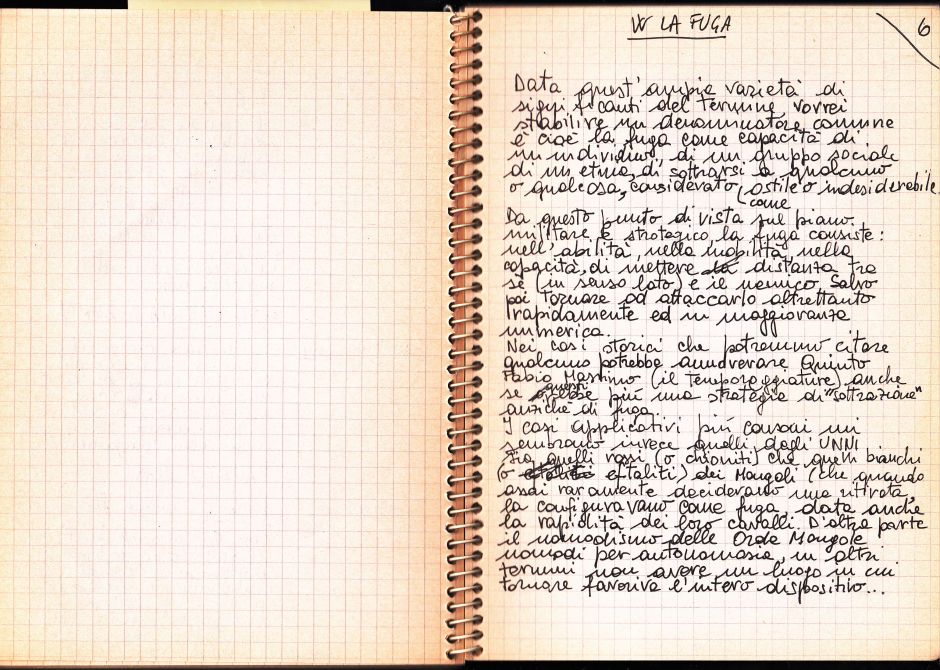 W LA FUGA
6
Data quest'ampia varietà di
significanti del termine, vorrei
stabilire un denominatore comune
e cioè la fuga come capacità di
un individuo, di un gruppo sociale
di un etnia, di sottrarsi a qualcuno
o qualcosa, considerato, ostile o indesiderabile
come
Da questo punto di vista sul piano
militare e strategico, la fuga consiste:
nell'abilità, nella mobilità, nella
capacità, di mettere la distanza tra
sè (in senso lato) e il nemico. Salvo
poi tornare ad attaccarlo altrettanto
rapidamente ed in maggioranza
numerica.
Nei casi storici che potremmo citare
qualcuno potrebbe annoverare Quinto
Fabio Massimo (il temporeggiatore) anche
se più una strategia di "sottrazione"
anziché di fuga.
I casi applicativi più consoni mi
sembrano invece quelli dagli UNNI
sia quelli rossi (o chioniti) che quelli bianchi
(o eftaliti) dei Mongoli (che quando
assai raramente decidevano una ritirata,
la configuravano come fuga, data anche
la rapidità dei loro cavalli. D'altra parte
il nomadismo delle Orde Mongole
nomadi per autonomasia, in altri
termini non avere un luogo in cui
tornare favoriva l'intero dispositivo...